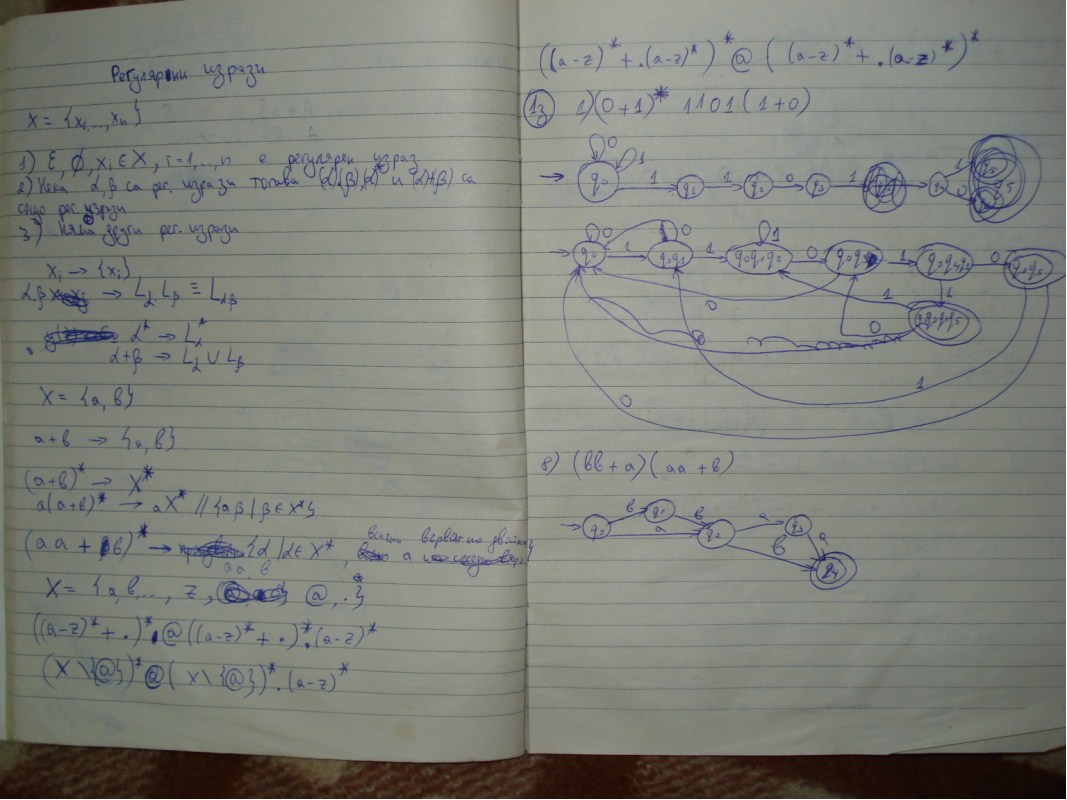 Регулярни изрази
X = {x₁,...,xₙ}
1) Ɛ, ∅, xᵢ ∈ X, i=1,...,n е регулярен израз
2) Нека α,β са рег. изрази тогава (α),(β), и са
също рег. изрази
3) Няма други рег. изрази
xᵢ → {xᵢ}
αβ → L_α L_β ≡ L_αβ
α* → L_α*
α+β → L_α ∪ L_β
X = {a, b}
a+b → {a, b}
(a+b)* → X*
a(a+b)* → aX* // {aβ | β ∈ X*}
(aa + b)* → {α | α ∈ X*, a
aa, b
X = {a, b..., z, @, .}
((a-z)* + .)* @ ((a-z)* + .)*.(a-z)*
(X \ {@})* @ (X \ {@})*.(a-z)*
((a-z)* + .(a-z)*)* @ ((a-z)* + .(a-z)*)*
1з 1) (0+1)* 1101(1+0)
0 1
q₀ 1 q₁ 1 q₂ 0 q₃ 1 1 0
0 0 1
q₀ 1 q₀q₁ 1 q₀q₁q₂ 0 q₀q₃ 1 0
0 1 1
0
1
0
8) (bb+a)(aa+b)
b q₁ b a q₃
q₀ a q₂ b a
q₄